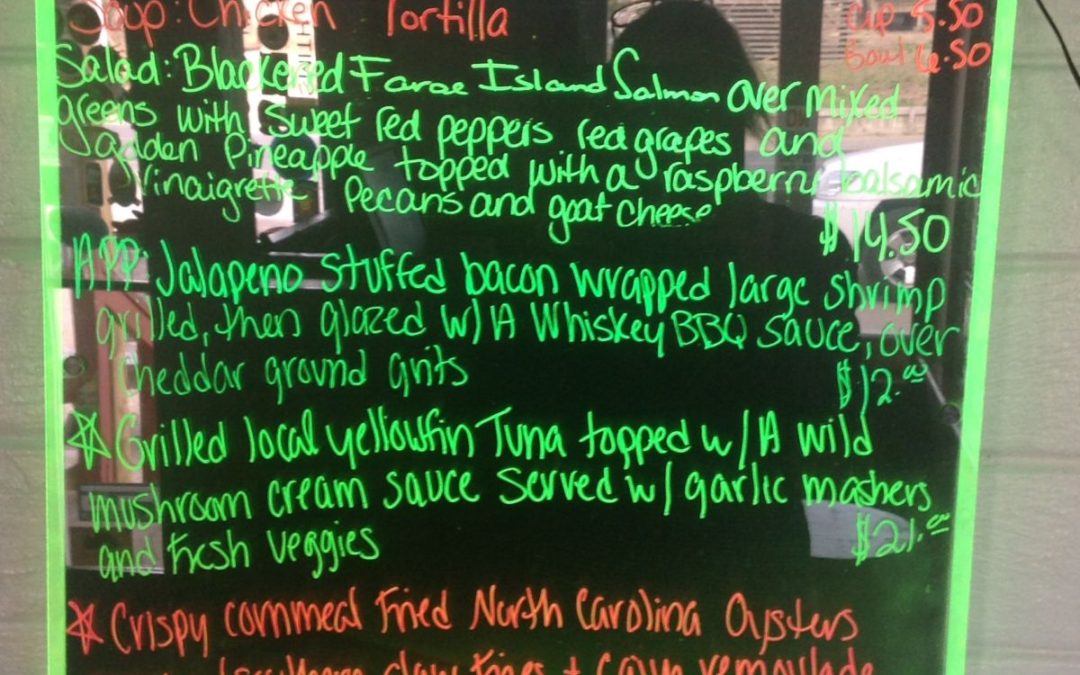 Soup: Chicken Tortilla
Cup 5.50
Bowl 6.50
Salad: Blackened Faroe Island Salmon over mixed
greens with sweet red peppers red grapes and
golden Pineapple topped with a raspberry balsamic
vinaigrette Pecans and goat cheese
$14.50
APP: Jalapeno stuffed bacon wrapped large shrimp
grilled, then glazed w/ A Whiskey BBQ sauce, over
cheddar ground grits
$12.00
☆ Grilled local yellowfin Tuna topped w/ A wild
mushroom cream sauce served w/ garlic mashers
and fresh veggies
$21.00
☆ Crispy cornmeal Fried North Carolina Oysters
fries + Cajun remoulade